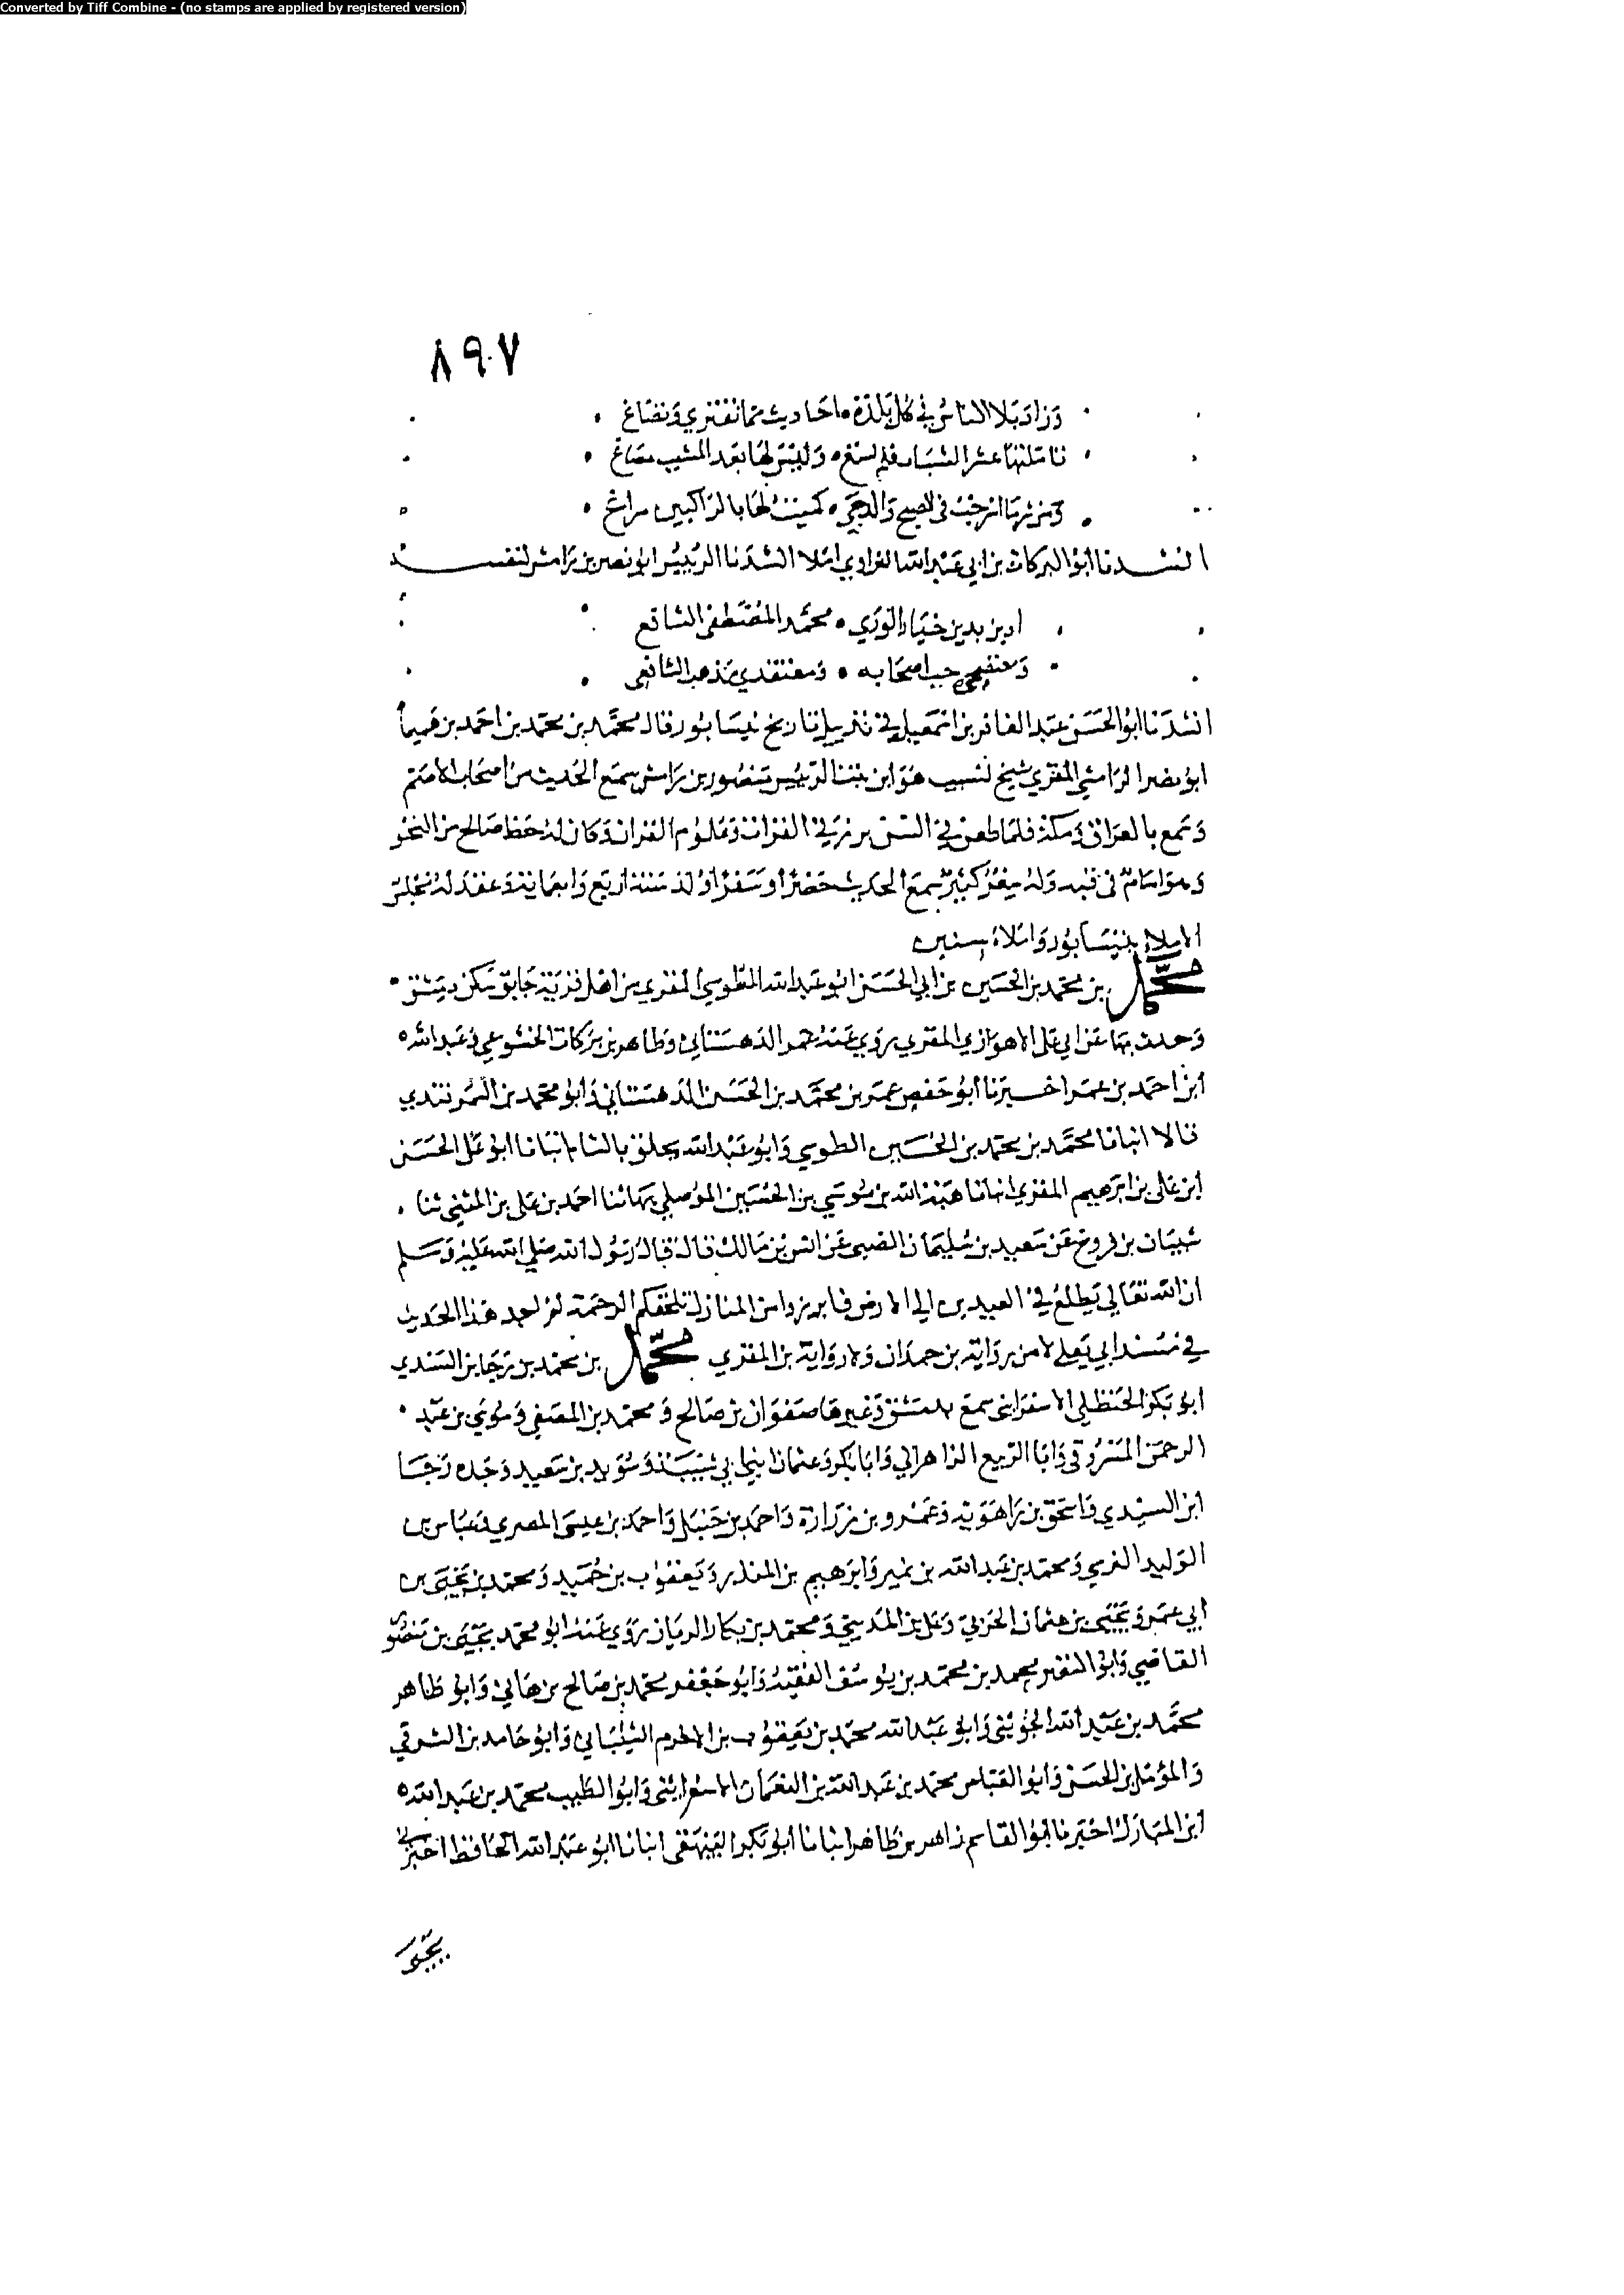 Converted by Tiff Combine - (no stamps are applied by registered version)
٨٩٧
وزاد بلا الناس في كل بلدة ما احاديث مما تفتري وتصاغ
تاملتها عشر الشباب فلم تسغ وليس لها بعد المشيب مصاغ
ومن شربها ان رحت في الصبح والدجى كميت لها بالراكبين مراغ
انشدنا ابو البركات بن ابي عبد الله الفراوي املا انشدنا الرئيس ابو نصر بن رامش لنفسه
ادين بدين خيار الورى محمد المصطفى الشافع
ومعتقدي حب اصحابه ومعتقدي مذهب الشافعي
انشدنا ابو الحسن عبد الغافر بن اسمعيل في تذييل تاريخ نيسابور قال محمد بن محمد بن احمد بن هميماه
ابو نصر الرامشي المقري شيخ نسيب هو ابن بنت الرئيس منصور بن رامش سمع الحديث من اصحاب الاصم
وسمع بالعراق ومكة فلما طعن في السن برز في القران وعلوم القران وكان له حظ صالح من النحو
وهو امام في فنه وله شعر كثير سمع الحديث حضرا وسفرا ولد سنة اربع واربعمائة وعقد له مجلس
الاملاء بنيسابور واملاء سنين
محمد بن محمد بن الحسين بن ابي الحسن ابو عبد الله الطوسي المقري من اهل قرية جابق سكن دمشق
وحدث بها عن ابي علي الاهوازي المقري روى عنه عمر الدهستاني وطاهر بن بركات الخشوعي وعبد الله
ابن احمد بن عمر اخبرنا ابو حفص عمر بن محمد بن الحسن الدهستاني وابو محمد بن السمرقندي
قالا انبانا محمد بن محمد بن الحسين الطوسي وابو عبد الله بجلق بالشام انبانا ابو علي الحسن
ابن علي بن ابرهيم المقري انبانا هبة الله بن موسى بن الحسين الموصلي بها ثنا احمد بن علي بن المثنى ثنا
شيبان بن فروخ عن سعيد بن سليمان الضبي عن انس بن مالك قال قال رسول الله صلى الله عليه وسلم
ان الله تعالى يطلع في العيدين الى الارض فابرزوا من المنازل تلحقكم الرحمة لم اجد هذا الحديث
في مسند ابي يعلى لا من رواية بن حمدان ولا رواية بن المقري محمد بن محمد بن رجا بن السندي
ابو بكر الحنظلي الاسفرايني سمع بدمشق وغيرها صفوان بن صالح ومحمد بن المصفى وموسى بن عبد
الرحمن المسروقي وابا الربيع الزاهراني وابا بكر وعثمان ابني ابي شيبة وسويد بن سعيد وجده رجا
ابن السندي واسحق بن راهويه وعمرو بن زرارة واحمد بن حنبل واحمد بن عيسى المصري وعباس بن
الوليد النرسي ومحمد بن عبد الله بن نمير وابرهيم بن المنذر ويعقوب بن حميد ومحمد بن يحيى بن
ابي عمر ويحيى بن عثمان الحربي وعلي بن المديني ومحمد بن بكار الريان روى عنه ابو محمد يحيى بن منصور
القاضي وابو النضر محمد بن محمد بن يوسف الفقيه وابو جعفر محمد بن صالح بن هاني وابو طاهر
محمد بن عبد الله الجويني وابو عبد الله محمد بن يعقوب بن الاخرم الشيباني وابو حامد بن الشرقي
والمؤمل بن الحسن وابو العباس محمد بن عبد الله بن النعمان الاسفرايني وابو الطيب محمد بن عبد الله
ابن المبارك اخبرنا ابو القاسم زاهر بن طاهر انبانا ابو بكر البيهقي انبانا ابو عبد الله الحافظ اخبرني
يحيى